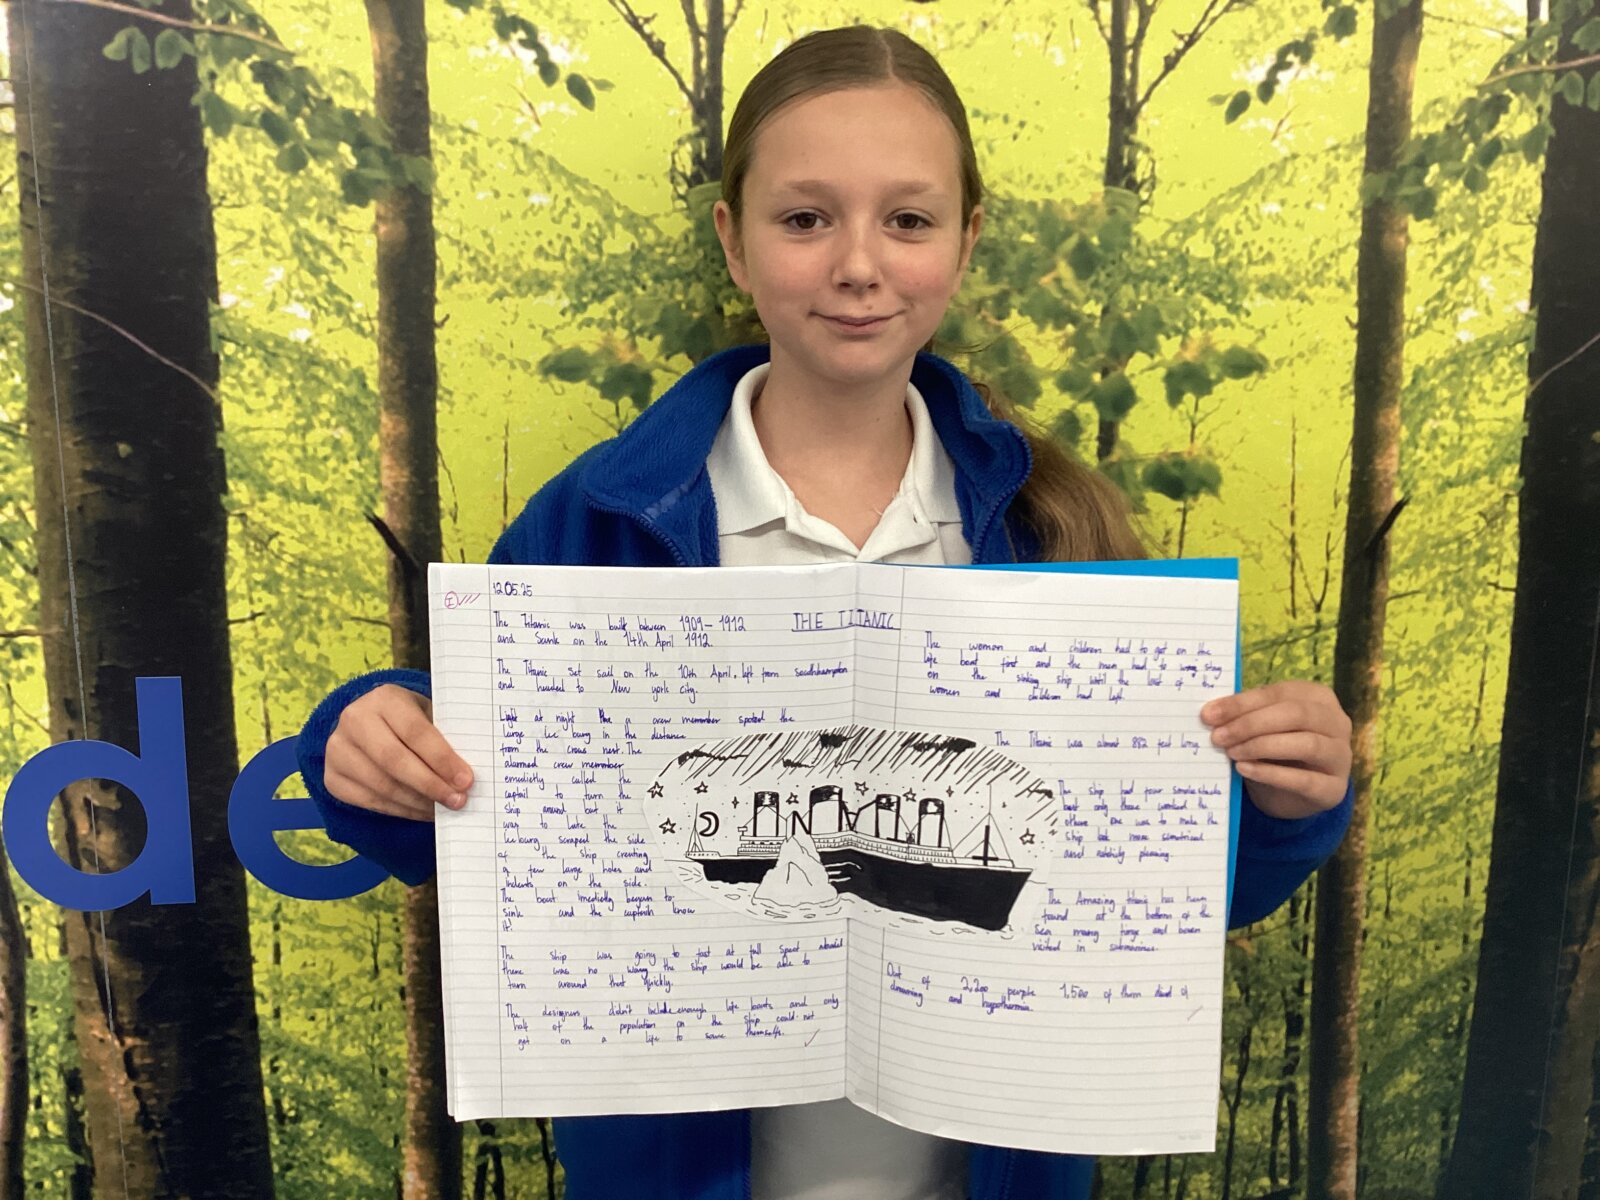 de
12.05.25
THE TITANIC
The Titanic was built between 1909 - 1912
and Sank on the 14th April 1912.
The Titanic set sail on the 10th April. left from southhampton
and headed to New york city.
Light at night a crew memember spotted the
large ice burg in the distance
from the crows nest. The
alarmed crew memember
emedietly called the
captail to turn the
ship around but it
was to late the
ice burg scraped the side
of the ship creating
a few large holes and
indents on the side.
The boat imedietly began to
sink and the captain know
it.
The ship was going to fast at full speed
there was no way the ship would be able to
turn around that quickly.
The designers didn't include enough life boats and only
half of the population on the ship could not
get on a life to save themselfs.
The women and children had to get on the
life boat first and the men had to stay
on the sinking ship until the last of the
women and children had left.
The Titanic was almost 882 feet long
The ship had four smokestacks
but only three worked the
othere one was to make the
ship look more
and pleasing.
The Amazing titanic has been
found at the bottom of the
Sea many times and been
visited in submarines.
Out of 2,200 people 1,500 of them died of
drowning and hypothermia.